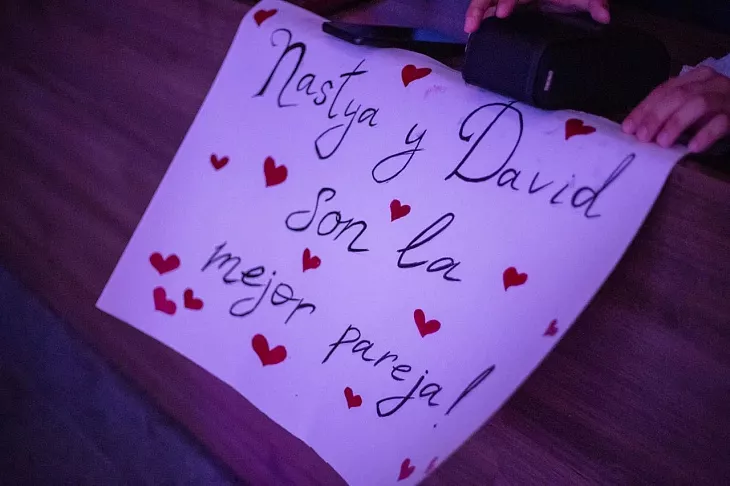 Nastya y David
Son la
mejor pareja!